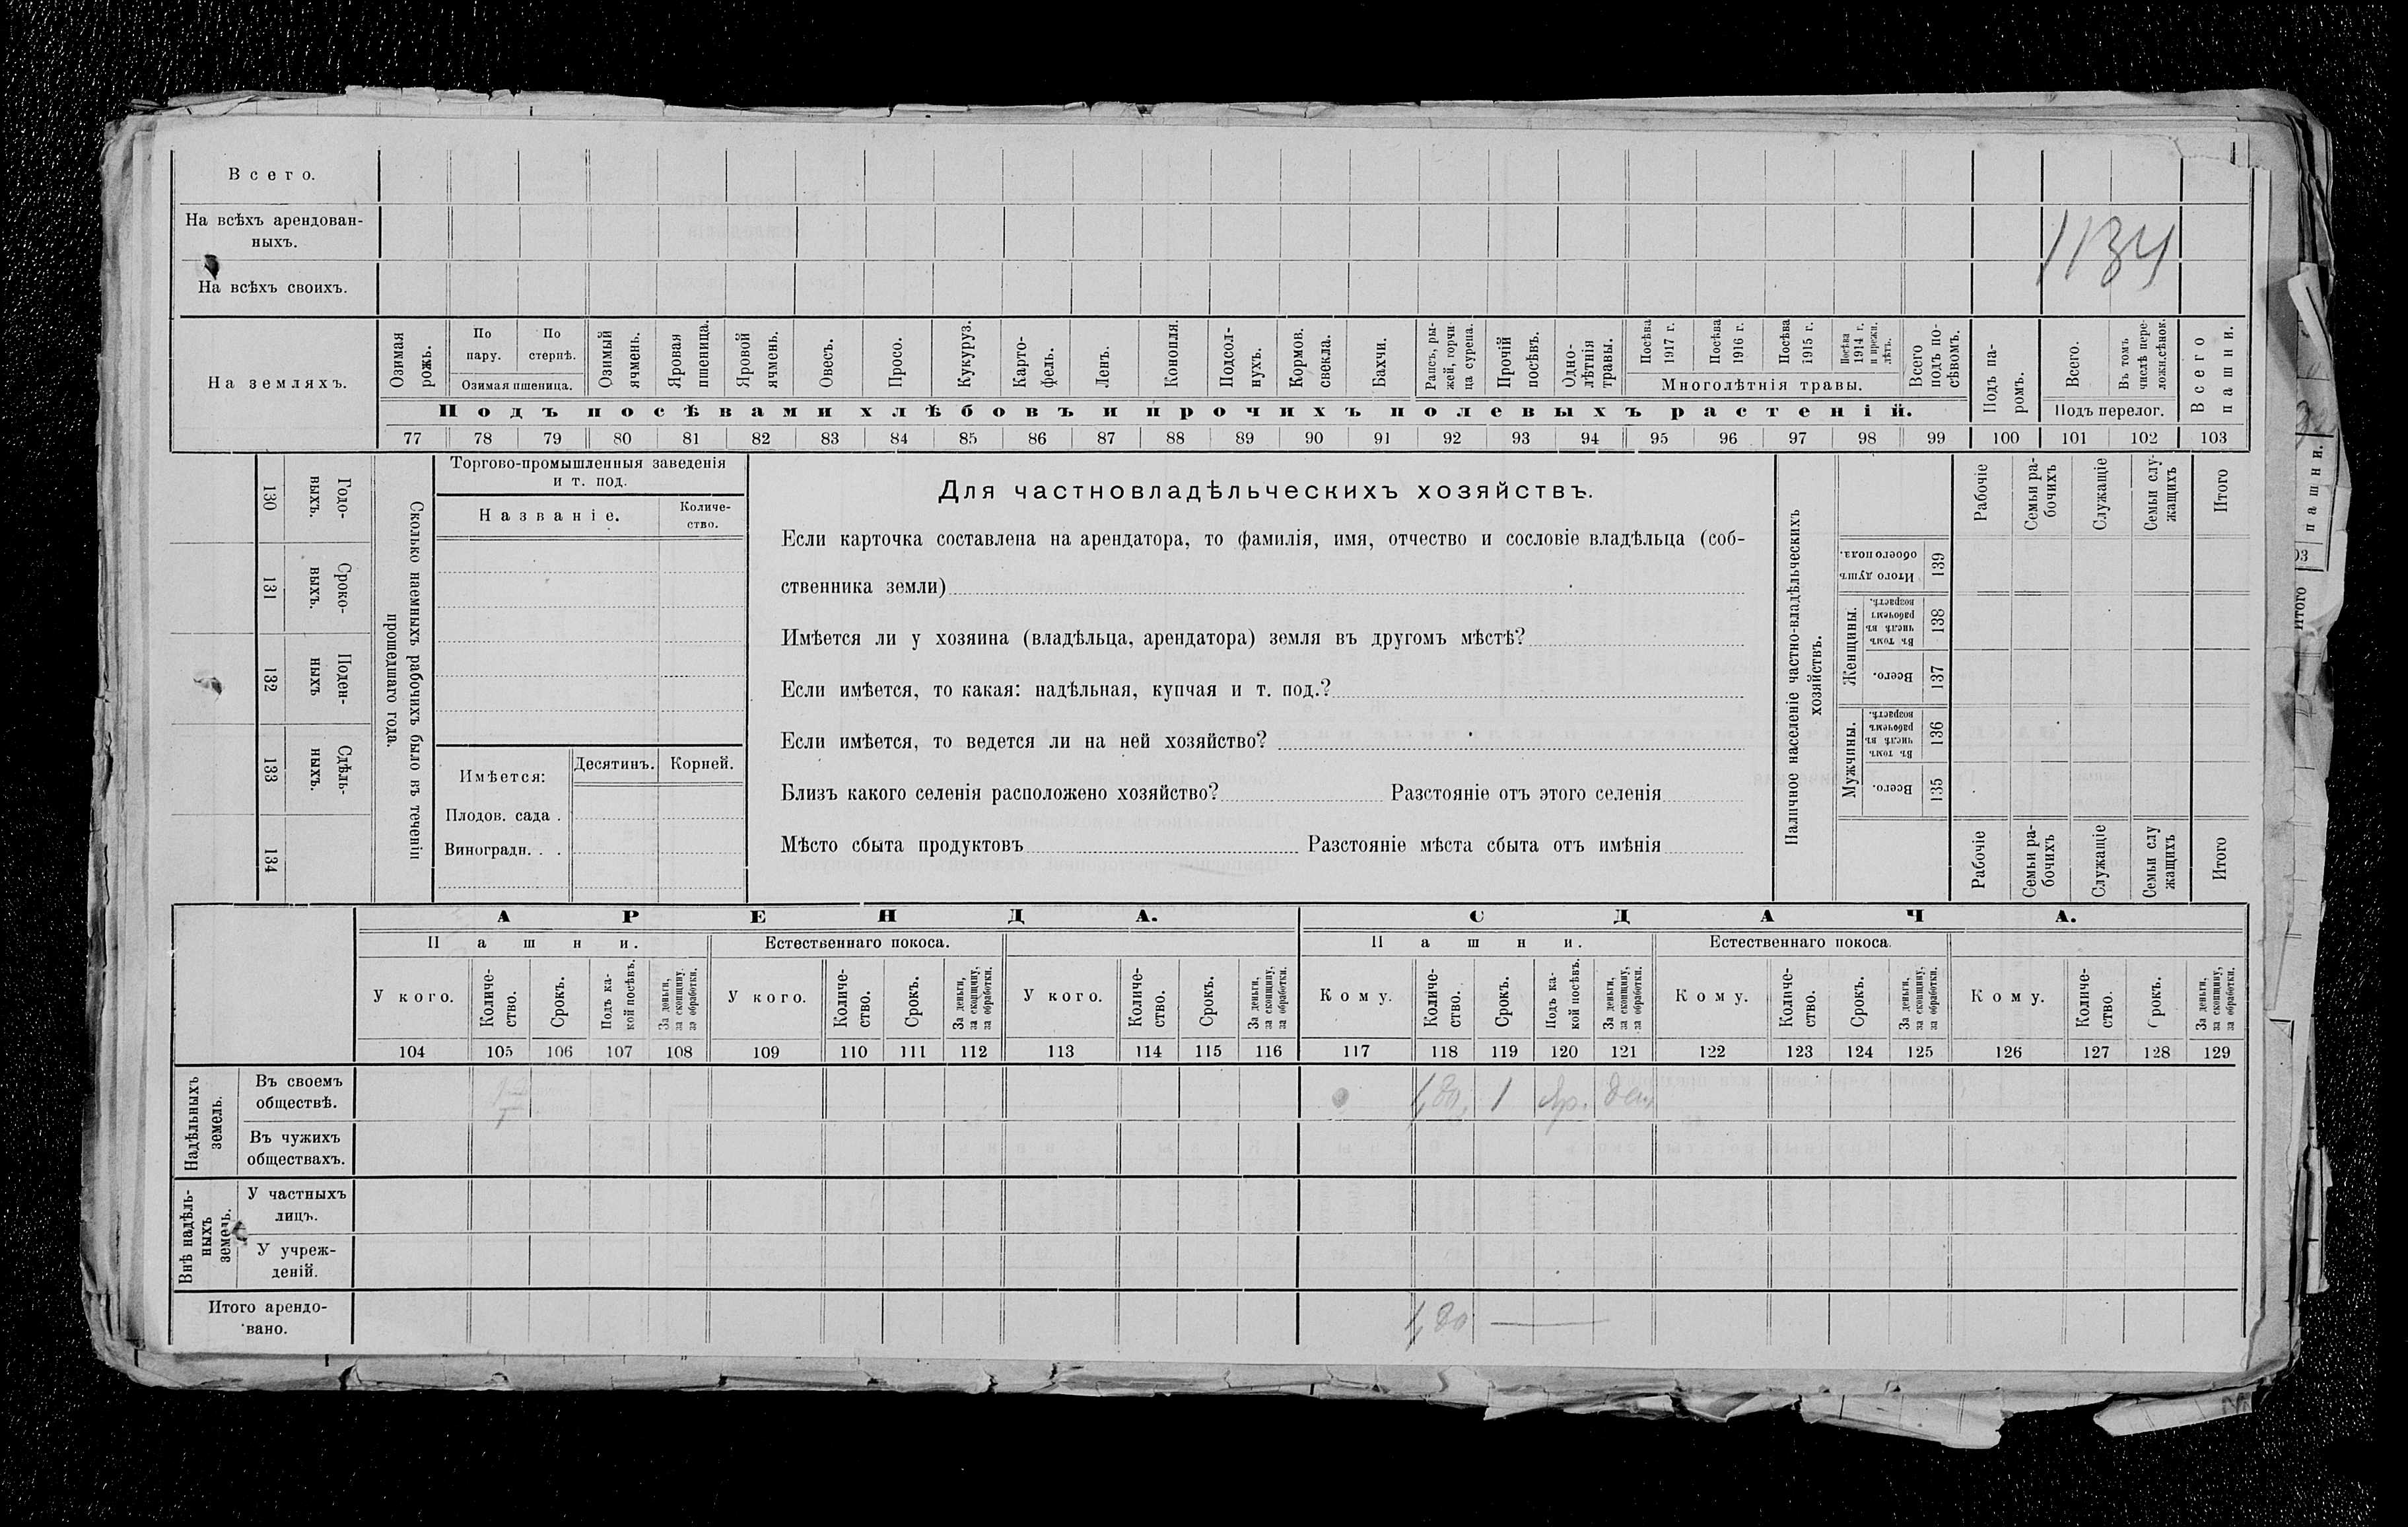 Всего.
На всѣхъ арендован-
ныхъ.
1134
На всѣхъ своихъ.
На земляхъ.
Озимая
рожь.
По
пару.
По
стернѣ.
Озимая пшеница.
Озимый
ячмень.
Яровая
пшеница.
Яровой
ячмень.
Овесъ.
Просо.
Кукуруз.
Карто-
фель.
Ленъ.
Конопля.
Подсол-
нухъ.
Кормов.
свекла.
Бахчи.
Рапсъ, ры-
жей, горчи-
ца сурепа.
Прочій
посѣвъ.
Одно-
лѣтнія
травы.
Посѣва
1917 г.
Посѣва
1916 г.
Посѣва
1915 г.
Посѣва
1914 г.
и прежн.
лѣтъ.
Многолѣтнія травы.
Всего
подъ по-
сѣвомъ.
Подъ па-
ромъ.
Всего.
Въ томъ
числѣ пере-
ложн.сѣнок.
Подъ перелог.
Всего
пашни.
Подъ посѣвами хлѣбовъ и прочихъ полевыхъ растеній.
77 78 79 80 81 82 83 84 85 86 87 88 89 90 91 92 93 94 95 96 97 98 99 100 101 102 103
130
Годо-
выхъ.
131
Сроко-
выхъ.
132
Поден-
ныхъ
133
Сдѣль-
ныхъ.
134
Сколько наемныхъ рабочихъ было въ теченіи
прошедшаго года.
Торгово-промышленныя заведенія
и т. под.
Названіе.
Количе-
ство.
Имѣется:
Десятинъ.
Корней.
Плодов. сада .
Виноградн. . .
Для частновладѣльческихъ хозяйствъ.
Если карточка составлена на арендатора, то фамилія, имя, отчество и сословіе владѣльца (соб-
ственника земли)
Имѣется ли у хозяина (владѣльца, арендатора) земля въ другомъ мѣстѣ?
Если имѣется, то какая: надѣльная, купчая и т. под.?
Если имѣется, то ведется ли на ней хозяйство?
Близъ какого селенія расположено хозяйство? Разстояніе отъ этого селенія
Мѣсто сбыта продуктовъ Разстояніе мѣста сбыта отъ имѣнія
Наличное населеніе частно-владѣльческихъ
хозяйствъ.
Рабочіе
Семьи ра-
бочихъ
Служащіе
Семьи слу-
жащихъ
Итого
Итого душъ
обоего пола.
139
Женщины.
Въ томъ
числѣ въ
рабочемъ
возрастѣ.
138
Всего.
137
Мужчины.
Въ томъ
числѣ въ
рабочемъ
возрастѣ.
136
Всего.
135
Рабочіе
Семьи ра-
бочихъ
Служащіе
Семьи слу
жащихъ
Итого
АРЕНДА.
СДАЧА.
Пашни.
Естественнаго покоса.
Пашни.
Естественнаго покоса.
У кого.
Количе-
ство.
Срокъ.
Подъ ка-
кой посѣвъ.
За деньги,
за скопщину,
за обработки.
У кого.
Количе-
ство.
Срокъ.
За деньги,
за скопщину,
за обработки.
У кого.
Количе-
ство.
Срокъ.
За деньги,
за скопщину,
за обработки.
Кому.
Количе-
ство.
Срокъ.
Подъ ка-
кой посѣвъ.
За деньги,
за скопщину,
за обработки.
Кому.
Количе-
ство.
Срокъ.
За деньги,
за скопщину,
за обработки.
Кому.
Количе-
ство.
Срокъ.
За деньги,
за скопщину,
за обработки.
104 105 106 107 108 109 110 111 112 113 114 115 116 117 118 119 120 121 122 123 124 125 126 127 128 129
Надѣльныхъ
земель.
Въ своемъ
обществѣ.
1,80 1 Яр. Ден
Въ чужихъ
обществахъ.
Внѣ надѣль-
ныхъ
земель.
У частныхъ
лицъ.
У учреж-
деній.
Итого арендо-
вано.
1,80
пашни.
03
Итого